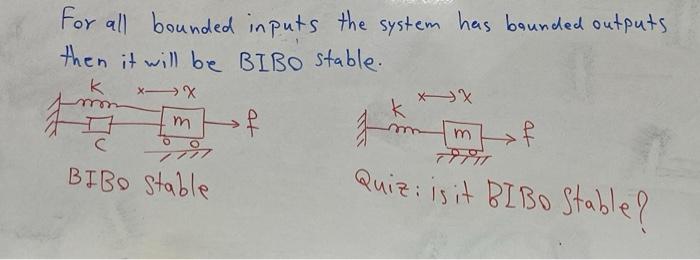 For all bounded inputs the system has bounded outputs
then it will be BIBO stable.
k x→x
m →f
c
BIBO stable
k x→x
m →f
Quiz: is it BIBO stable?